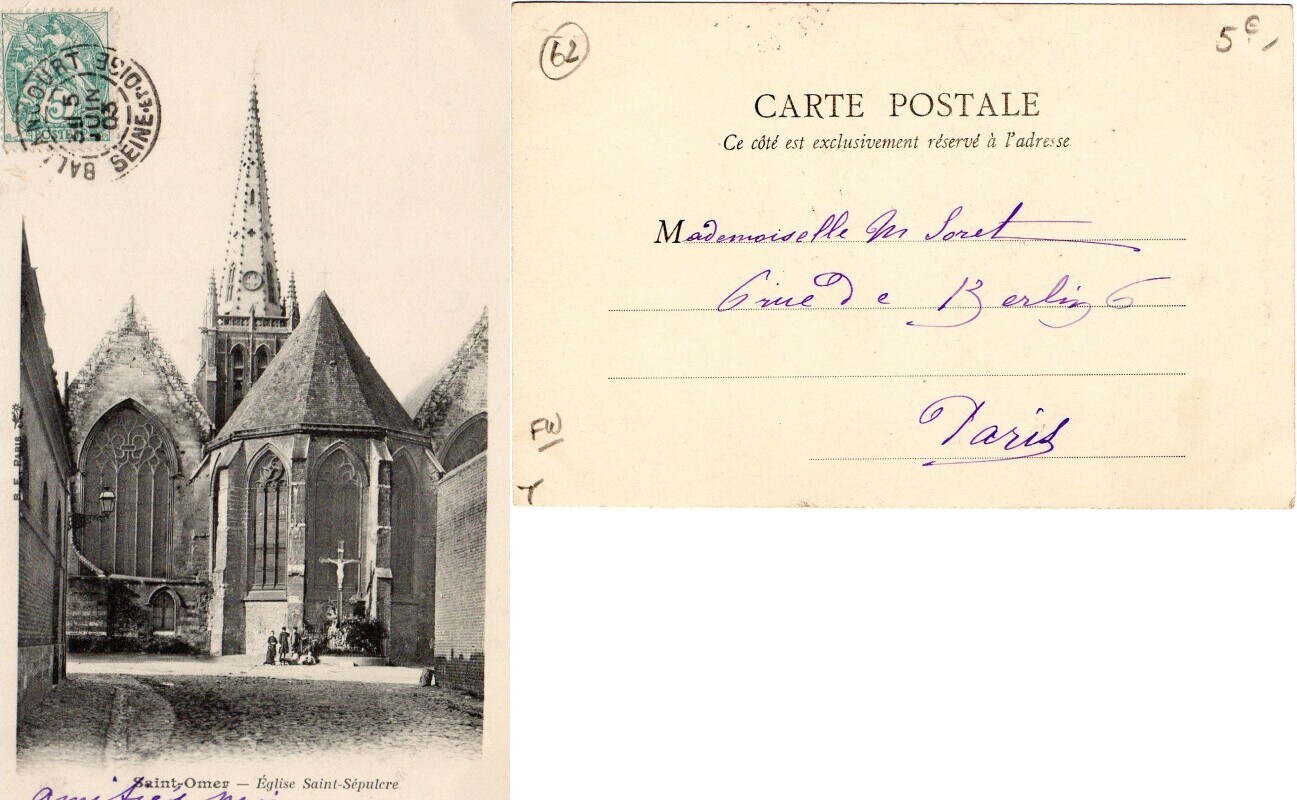 BALLANCOURT
5E
15
JUIN
03
SEINE-ET-OISE
5
POSTES
B. F. PARIS
Saint-Omer — Église Saint-Sépulcre
amitiés
62
5€,
CARTE POSTALE
Ce côté est exclusivement réservé à l'adresse
Mademoiselle M Soret
6 rue de Berlin 6
Paris
FW
T